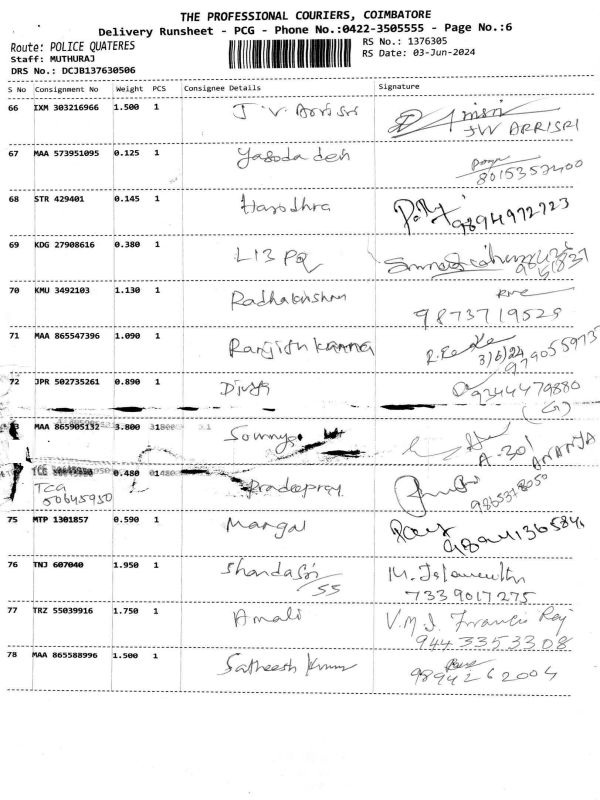 THE PROFESSIONAL COURIERS, COIMBATORE
Delivery Runsheet - PCG - Phone No.:0422-3505555 - Page No.:6
Route: POLICE QUATERES
Staff: MUTHURAJ
DRS No.: DCJB137630506
RS No.: 1376305
RS Date: 03-Jun-2024
S No Consignment No Weight PCS Consignee Details Signature
66 IXM 303216966 1.500 1 J.V. Arrisri
JW ARRISRI
67 MAA 573951095 0.125 1 Yasoda deh
8015352400
68 STR 429401 0.145 1 Harodhra
9894972723
69 KDG 27908616 0.380 1 L13 PQ
70 KMU 3492103 1.130 1 Radhakrishnan
9873719525
71 MAA 865547396 1.090 1 Ranjith Kanna
3/6/24
9790559735
72 JPR 502735261 0.890 1 Divya
9344479880
(G)
MAA 865905132 3.800
A-201
ANANJA
0.480 Pradeepraj
TCG
50645950
9865378050
75 MTP 1301857 0.590 1 Mangal
76 TNJ 607040 1.950 1
SS
7339017275
77 TRZ 55039916 1.750 1 Amali V.M.J. Francis Raj
9443353308
78 MAA 865588996 1.500 1 Satheesh Kumar
9894262004